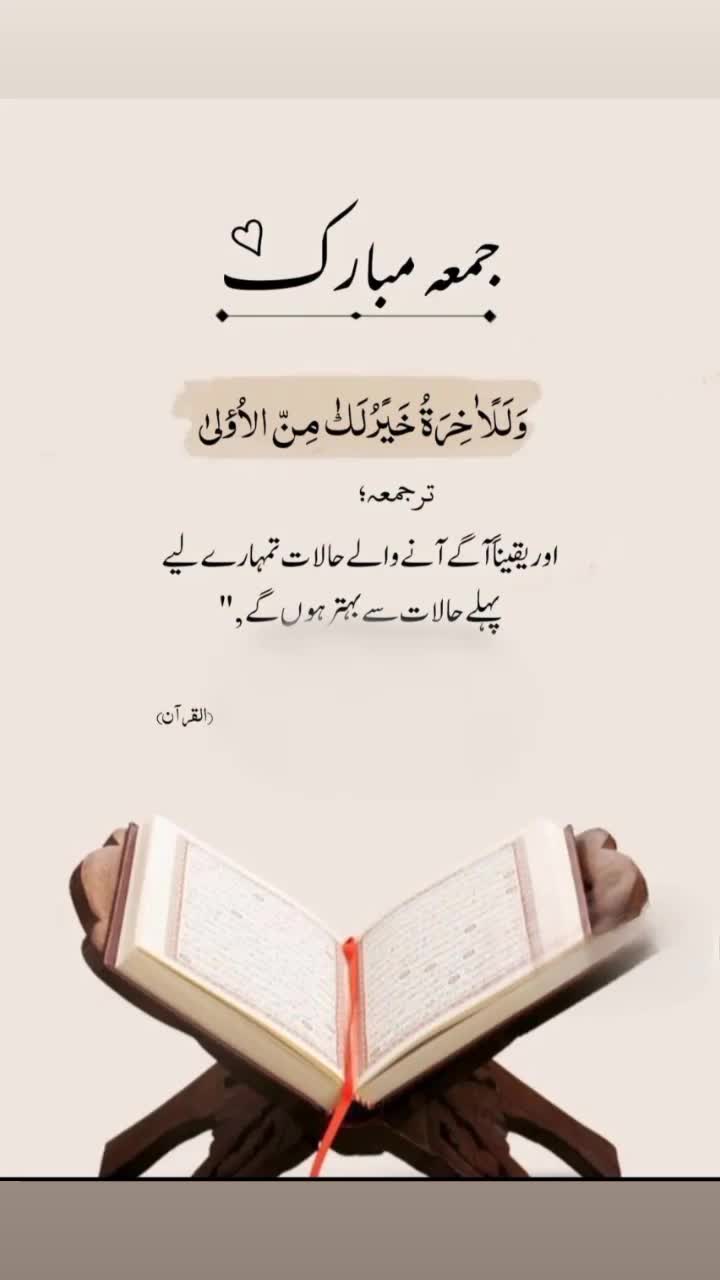 جمعہ مبارک
وَلَلْاٰخِرَةُ خَيْرٌلَّكَ مِنَ الْاُوْلٰى
ترجمعہ؛
اور یقیناً آگے آنے والے حالات تمہارے لیے
پہلے حالات سے بہتر ہوں گے,"
(القرآن)